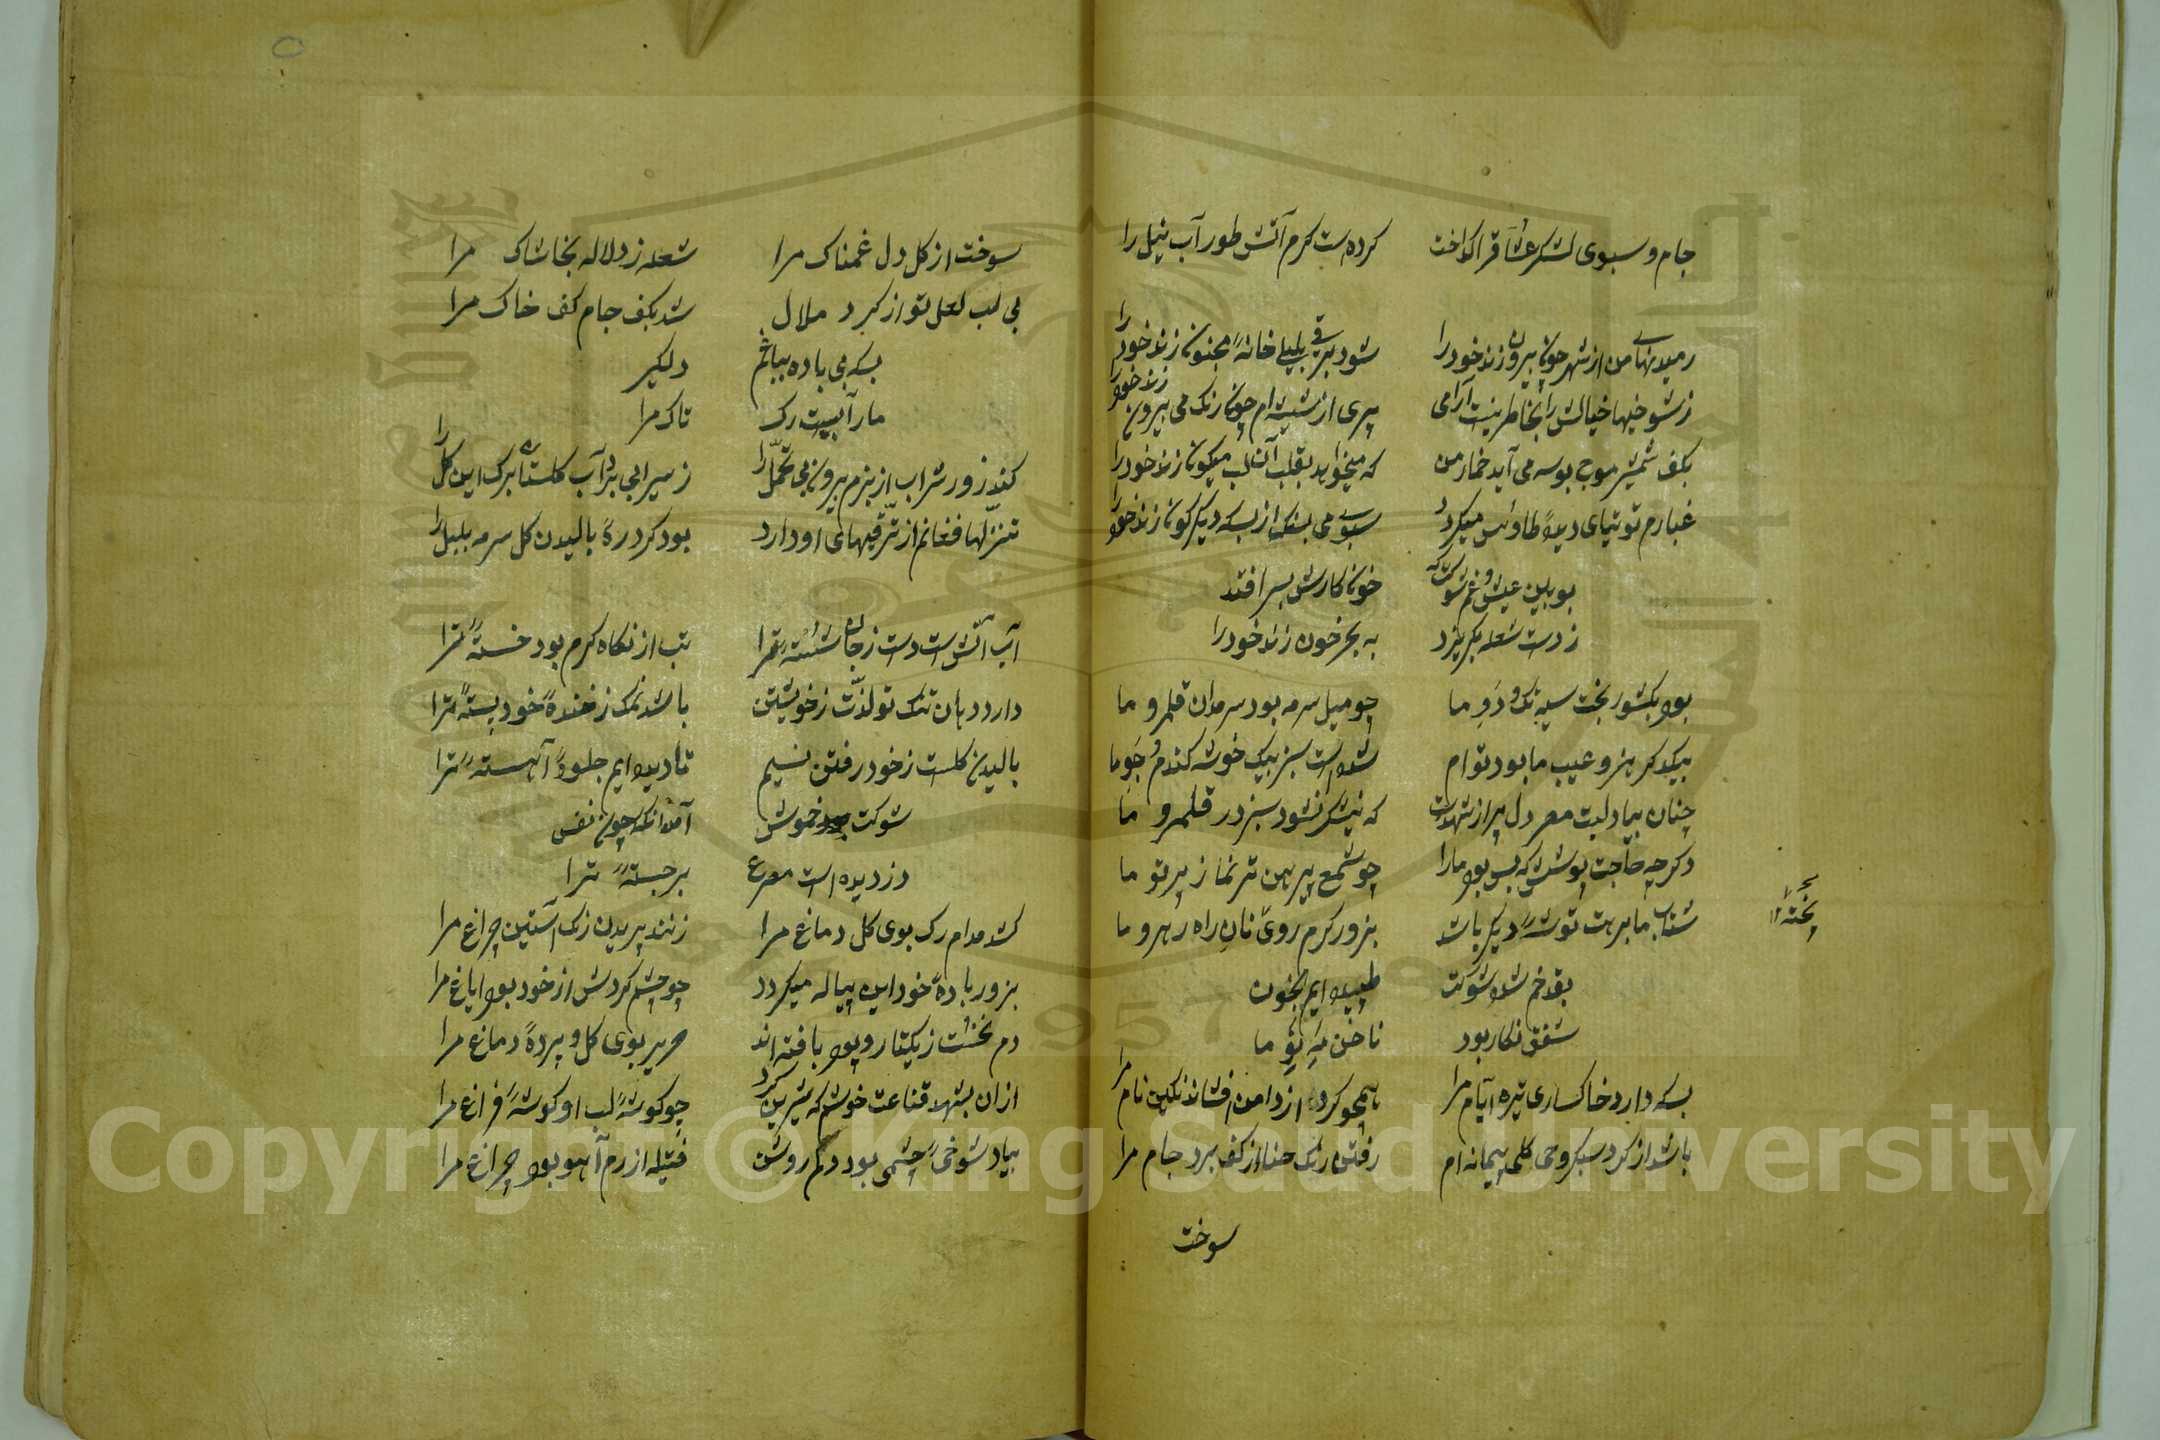 جام و سبوی لشکر عشاق را گداخت کرده‌ست گرم آتش طور آب نیل را
رمیدنهای من از شهر چون بیرون زند خود را شود برقی بلیلی خانهٔ مجنون زند خود را
ز شوخیها خیالش را بخاطر نیست آرامی پری از شیشه‌ام چون رنگ می بیرون زند خود را
بکف شمشیر موج بوسه می آید خمار من که میخواهد بقلب آن لب میگون زند خود را
غبارم توتیای دیدهٔ طاوس میگردد سبوی می بسنگ از بسکه دیگرگون زند خود را
بوبین عیش و غم شوکت که خون کارش بسر افتد
ز دست شعله بگریزد به بحر خون زند خود را
بود بکشور بخت سیه تک و دو ما چو میل سرمه بود سرمه‌دان قلمرو ما
بیکدگر هنر و عیب ما بود توام شده است سبز بیک خوشه گندم و جو ما
چنان بیاد لبت مصر دل پر از شهد است که نیشکر نشود سبز در قلمرو ما
دگر چه حاجت پوشش که بس بود ما را چو شمع پیرهن تر نما ز پرتو ما
شتاب ما برهت توشهٔ دیگر باشد بزور گرم روی نان راه رهرو ما
پخته ۱۲
بقد خم شده شوکت طپیده ایم بخون
شفق نگار بود ناخن مه نو ما
بسکه دارد خاکساری تیره ایام مرا همچو گرد از دامن افشاند نگین نام مرا
باشد از گرد سبکروحی گلی پیمانه ام رفتن رنگ حنا از کف برد جام مرا
سوخت
سوخت از گل دل غمناک مرا شعله زد لاله بخاشاک مرا
بی لب لعل تو از گرد ملال شد بکف جام کف خاک مرا
بسکه بی باده بباغم دلگیر
مار آبیست رگ تاک مرا
کند زور شراب از بزم بیرون بی تحمل را ز سیرابی برد آب گلستان برگ این گل را
تنزلها فغانم از ترقیهای او دارد بود گرد ره بالیدن گل سرمه بلبل را
آب آتش است دست ز جان شستهٔ ترا تب از نگاه گرم بود خستهٔ ترا
دارد دهان تنگ تو لذت ز خویشتن باشد نمک ز خندهٔ خود پستهٔ ترا
بالیدن گلست ز خود رفتن نسیم تا دیده ایم جلوهٔ آهستهٔ ترا
شوکت خموش آمد آنکه چون نفس
دزدیده است مصرع برجستهٔ ترا
کشد مدام رگ بوی گل دماغ مرا زند پریدن رنگ آستین چراغ مرا
بزور بادهٔ خود این پیاله میگردد چو چشم گردش از خود بود ایاغ مرا
دم نخست ز یکتار و پود بافته اند حریر بوی گل و پردهٔ دماغ مرا
ازان بشهد قناعت خوشم که شیرین کرد چو گوشهٔ لب او گوشهٔ فراغ مرا
بیاد شوخی چشمی بود دلم روشن فتیله از رم آهو بود چراغ مرا